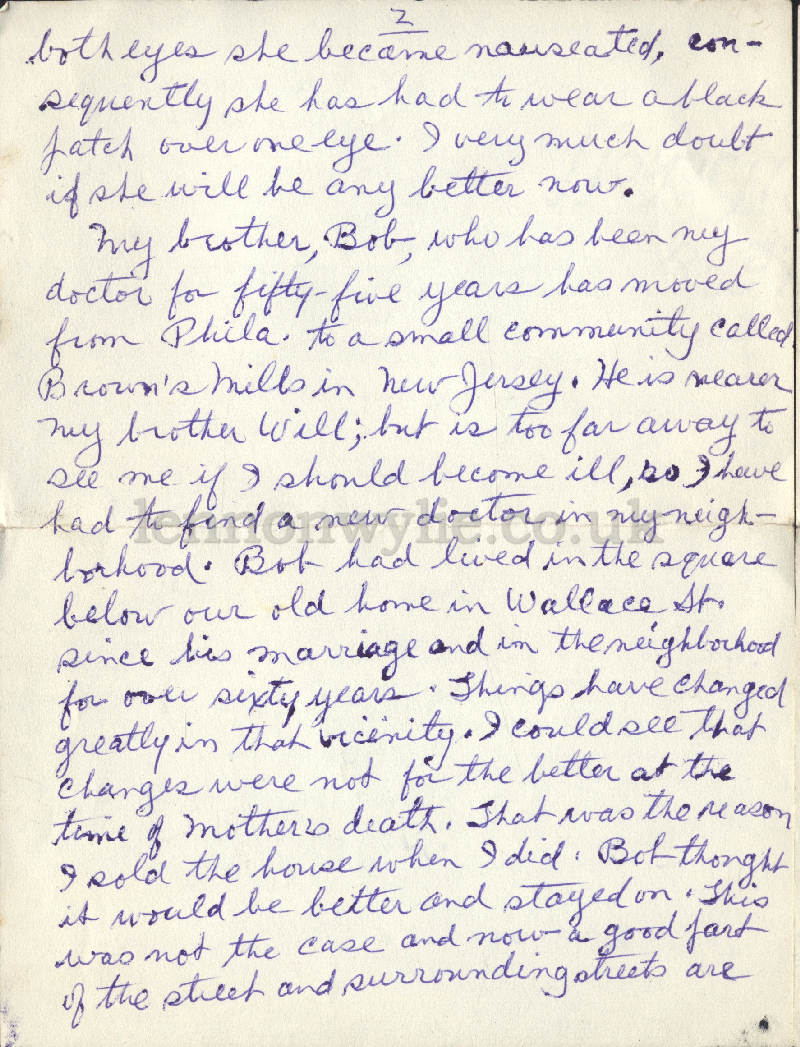 2
both eyes she became nauseated, con-
sequently she has had to wear a black
patch over one eye. I very much doubt
if she will be any better now.
My brother, Bob, who has been my
doctor for fifty-five years has moved
from Phila. to a small community called
Brown's Mills in New Jersey. He is nearer
my brother Will; but is too far away to
see me if I should become ill, so I have
had to find a new doctor in my neigh-
borhood. Bob had lived in the square
below our old home in Wallace St.
since his marriage and in the neighborhood
for over sixty years. Things have changed
greatly in that vicinity. I could see that
changes were not for the better at the
time of Mother's death. That was the reason
I sold the house when I did. Bob thought
it would be better and stayed on. This
was not the case and now a good part
of the street and surrounding streets are
lennonwylie.co.uk